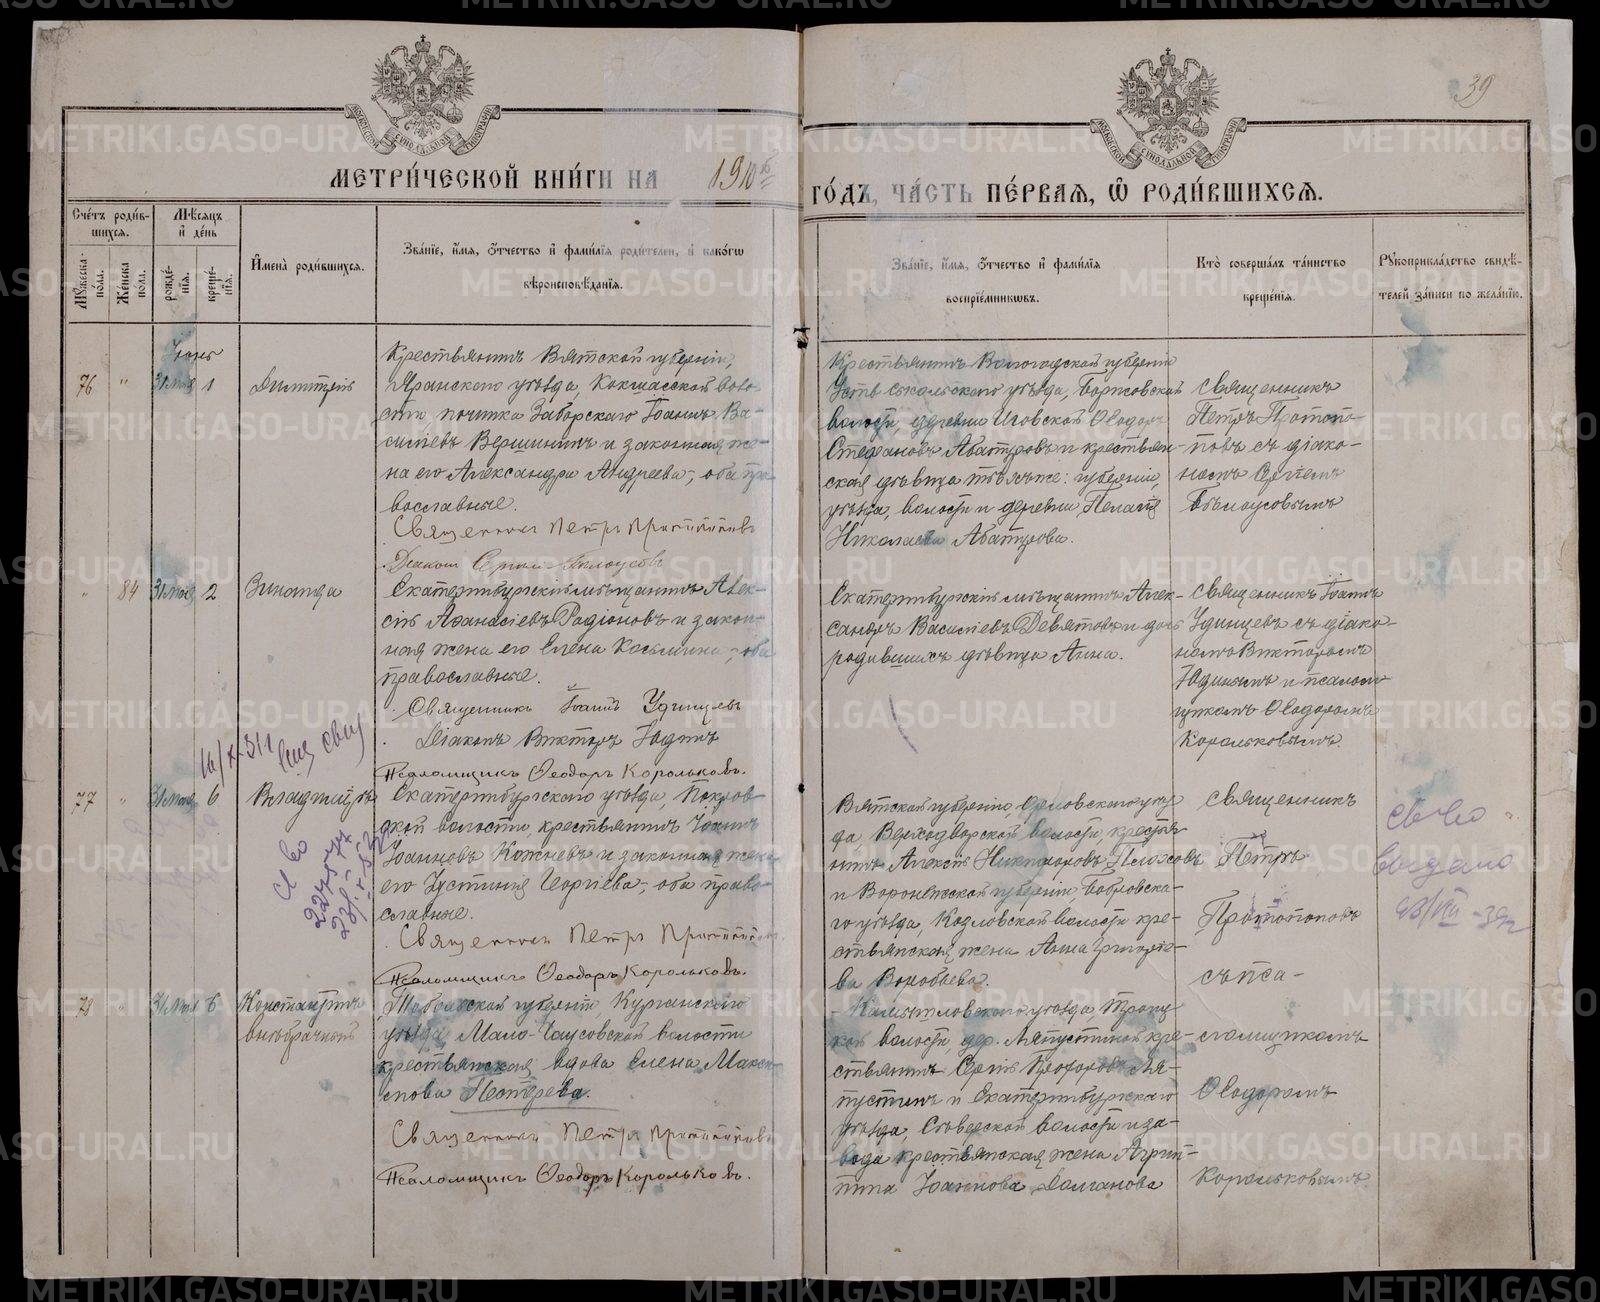 39
МЕТРИ́ЧЕСКОЙ КНИ́ГИ НА 1910
ГО́ДЪ, ЧА́СТЬ ПЕ́РВАЯ, Ѿ РОДИ́ВШИХСЯ.
Сче́тъ роди́вшихся.
Му́жеска по́ла.
Же́нска по́ла.
Мѣ́сяцъ и҆ де́нь
рожде́нія.
креще́нія.
И҆мена̀ роди́вшихся.
Зва́ніе, и҆́мя, ѻ҆́тчество и҆ фами́лія роди́телей, и҆ како́гѡ
вѣроисповѣ́данія.
Зва́ніе, и҆́мя, ѻ҆́тчество и҆ фами́лія
воспріе́мниковъ.
Кто̀ соверша́лъ та́инство
креще́нія.
Рукоприкла́дство свидѣ́-
телей за́писи по жела́нію.
Іюнь
76 " 31 мая 1 Димитрій
Крестьянинъ Вятской губерніи,
Яранскаго уѣзда, Кокшагской воло-
сти, починка Заборскаго Іоаннъ Ва-
силіевъ Вершининъ и законная же-
на его Александра Андреева, оба пра
вославные.
Священникъ Петръ Протопоповъ
Діаконъ Сергій Бѣлоусовъ
Крестьянинъ Вологодской губерніи
Усть-Сысольскаго уѣзда, Борисовской
волости, деревни Иговской Ѳеодоръ
Стефановъ Абатуровъ и крестьян-
ская дѣвица тѣхъ же: губерніи,
уѣзда, волости и деревни, Пелагія
Николаева Абатурова.
Священникъ
Петръ Протопо-
повъ съ діако-
номъ Сергіемъ
Бѣлоусовымъ
" 84 31 мая 2 Зинаида
Екатеринбургскій мѣщанинъ Алек-
сій Аѳанасіевъ Радіоновъ и закон-
ная жена его Елена Косьмина, оба
православные.
Священникъ Іоаннъ Удинцевъ
Діаконъ Викторъ Юдинъ
Псаломщикъ Ѳеодоръ Корольковъ.
Екатеринбургскій мѣщанинъ Алек-
сандръ Василіевъ Девятовъ и дочь
родившихъ дѣвица Анна.
Священникъ Іоаннъ
Удинцевъ съ діако-
номъ Викторомъ
Юдинымъ и псалом-
щикомъ Ѳеодоромъ
Корольковымъ.
77 " 31 мая 6 Владимиръ
Екатеринбургскаго уѣзда, Покров-
ской волости, крестьянинъ Іоаннъ
Іоанновъ Кожневъ и законная жена
его Іустинія Георгіева, оба право-
славные.
Священникъ Петръ Протопоповъ
Псаломщикъ Ѳеодоръ Корольковъ.
Вятской губерніи, Орловскаго уѣз
да, Верходворской волости, крестья-
нинъ Алексій Никаноровъ Плюховъ
и Воронежской губерніи, Бобровска-
го уѣзда, Козловской волости кре-
стьянская жена Анна Григорье-
ва Воробьева.
Священникъ
Петръ
Протопоповъ
съ пса-
ломщикомъ
Ѳеодоромъ
Корольковымъ
св-во
выдано
78 " 31 мая 6 Константинъ
внѣбрачный
Тобольской губерніи, Курганскаго
уѣзда, Мало-Чаусовской волости
крестьянская вдова Елена Макси-
мова Нотерева.
Священникъ Петръ Протопоповъ
Псаломщикъ Ѳеодоръ Корольковъ.
Камышловскаго уѣзда, Троиц
кой волости, дер. Ляпустиной кре-
стьянинъ Сергій Прохоровъ Ля-
пустинъ и Екатеринбургскаго
уѣзда, Сѣверской волости и за-
вода крестьянская жена Агрип-
пина Іоаннова Долганова